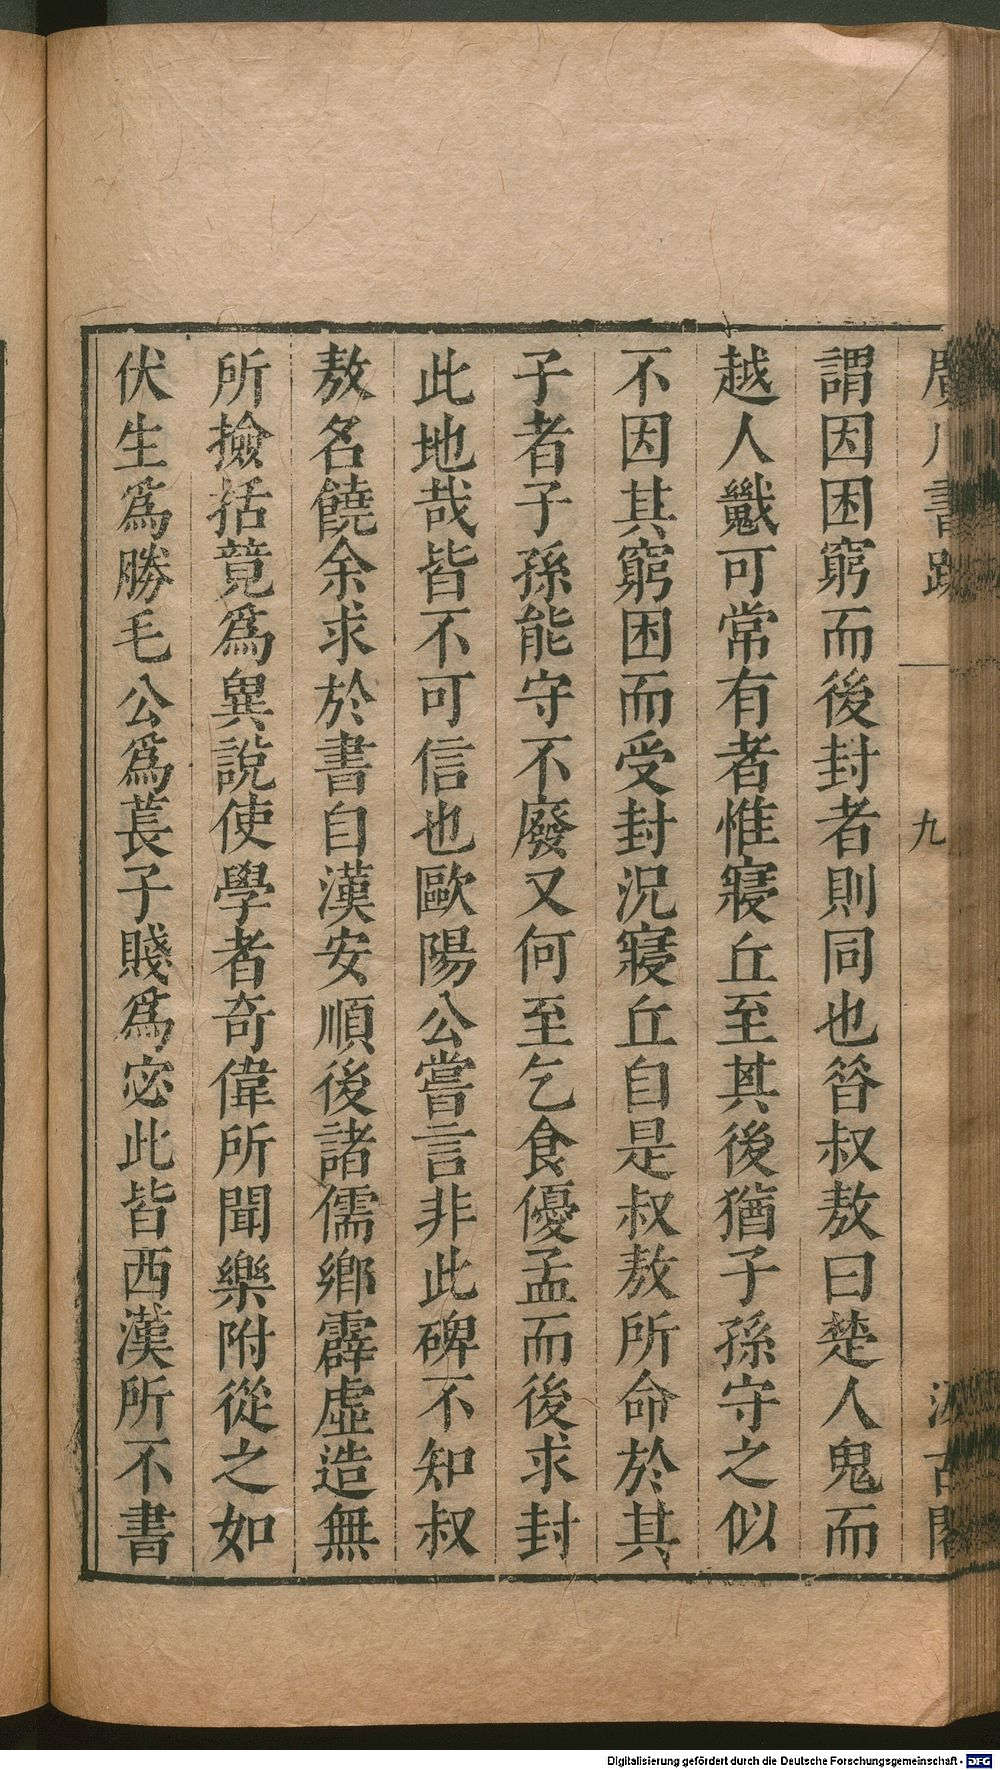 謂因困窮而後封者則同也昝叔敖曰楚人鬼而
越人禨可常有者惟寢丘至其後猶子孫守之似
不因其窮困而受封況寢丘自是叔敖所命於其
子者子孫能守不廢又何至乞食優孟而後求封
此地哉皆不可信也歐陽公嘗言非此碑不知叔
敖名饒余求於書自漢安順後諸儒鄉霹虛造無
所撿括竟為異說使學者奇偉所聞樂附從之如
伏生為勝毛公為萇子賤為宓此皆西漢所不書
廣川書跋
九
汲古閣
Digitalisierung gefördert durch die Deutsche Forschungsgemeinschaft - DFG